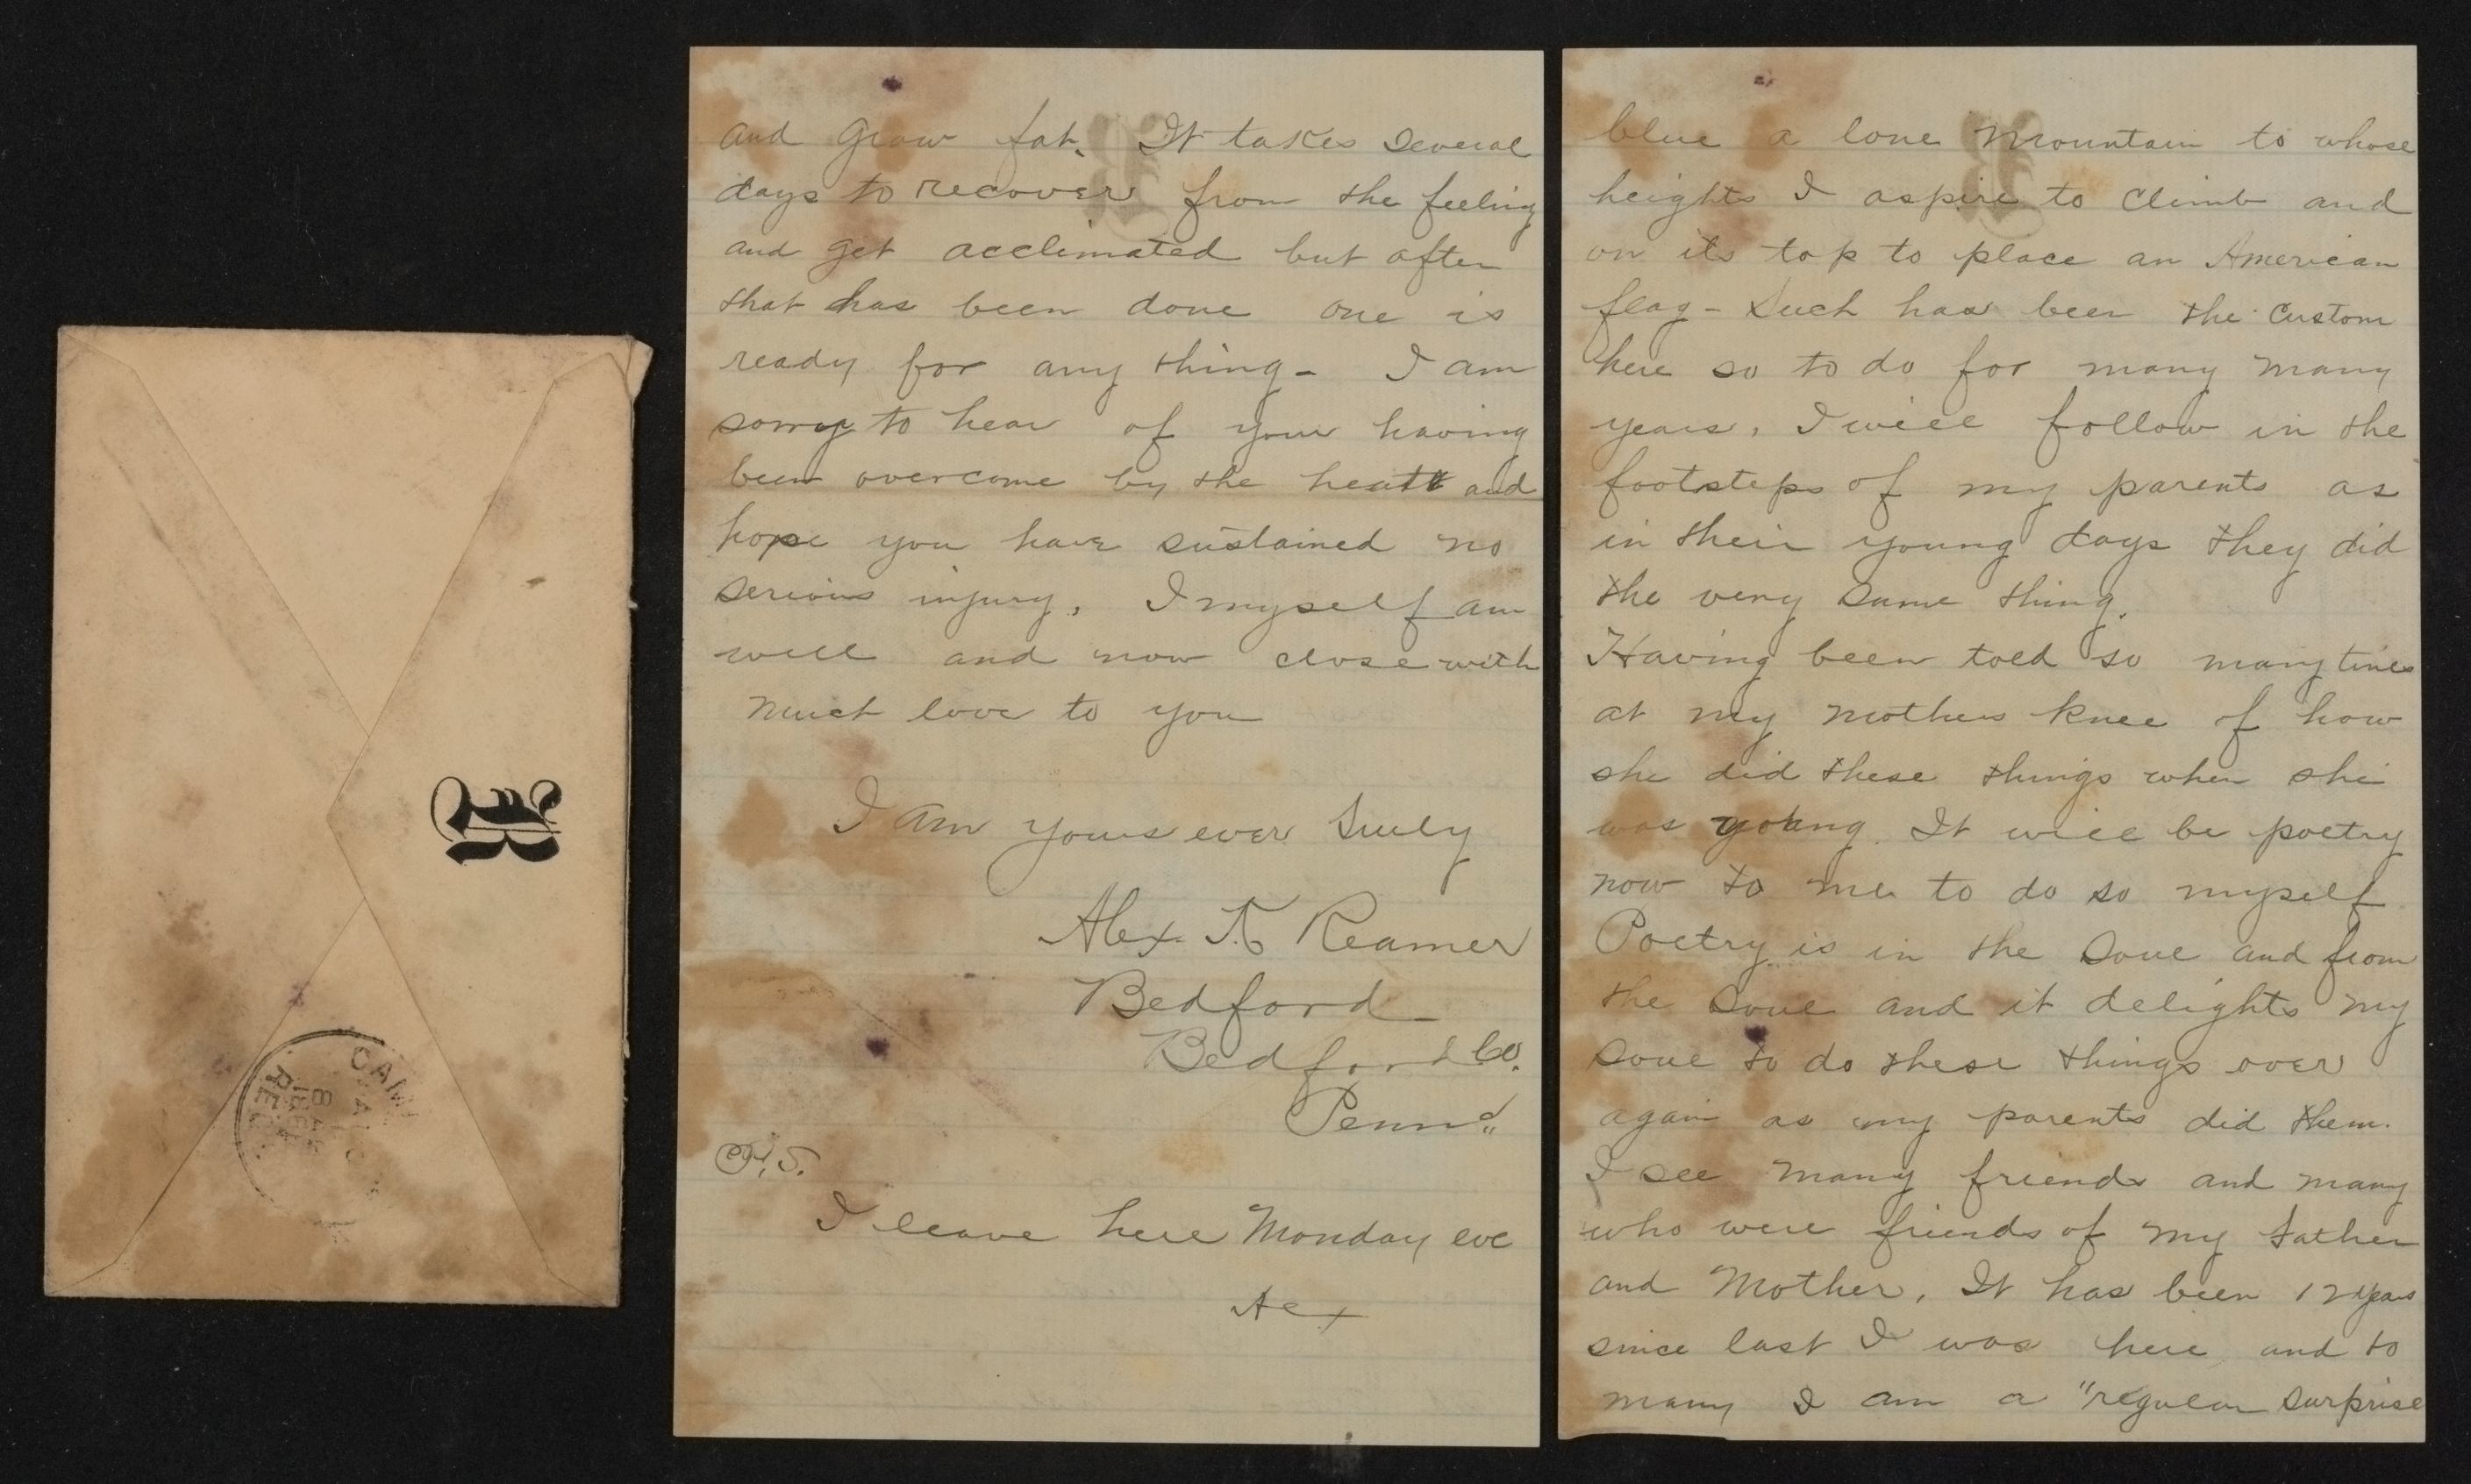 R
REC'D
8
and grow fat. It takes several
days to recover from the feeling
and get acclimated but after
that has been done one is
ready for any thing - I am
sorry to hear of your having
been overcome by the heat and
hope you have sustained no
serious injury, I myself am
well and now close with
much love to you
I am yours ever truly
Alex. Reamer
Bedford
Bedford Co.
Penna
P.S.
I leave here Monday eve
Alex
blue a lone Mountain to whose
heights I aspire to climb and
on its top to place an American
flag - Such has been the custom
here so to do for many many
years, I will follow in the
footsteps of my parents as
in their young days they did
the very same thing.
Having been told so many times
at my mothers knee of how
she did these things when she
was young. It will be poetry
now to me to do so myself
Poetry is in the soul and from
the soul and it delights my
soul to do these things over
again as my parents did them.
I see many friends and many
who were friends of my Father
and Mother. It has been 12 years
since last I was here and to
many I am a "regular surprise